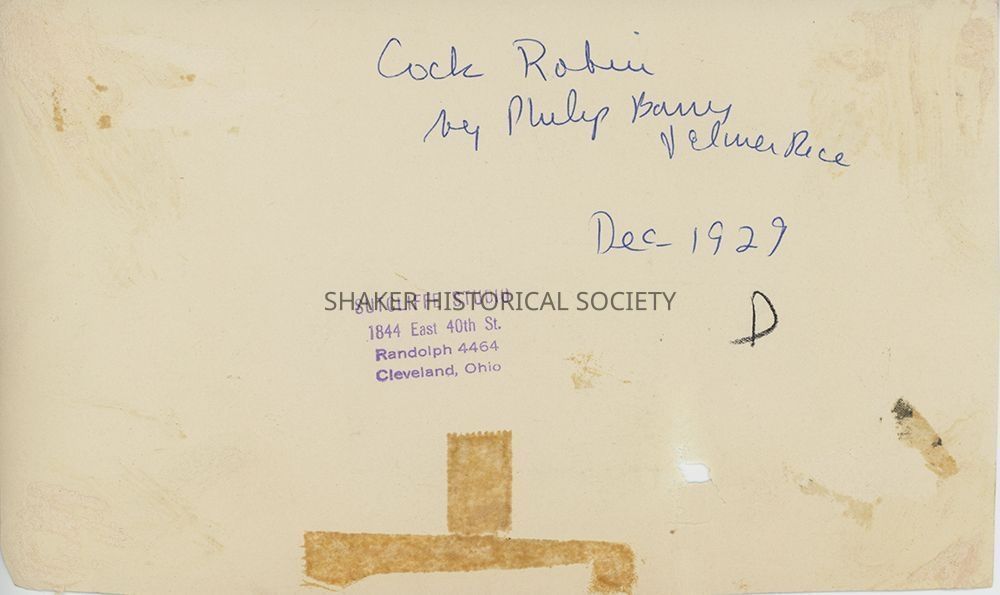 Cock Robin
by Philip Barry
& Elmer Rice
Dec 1929
SHAKER HISTORICAL SOCIETY
SUTCLIFFE STUDIO
1844 East 40th St.
D
Randolph 4464
Cleveland, Ohio